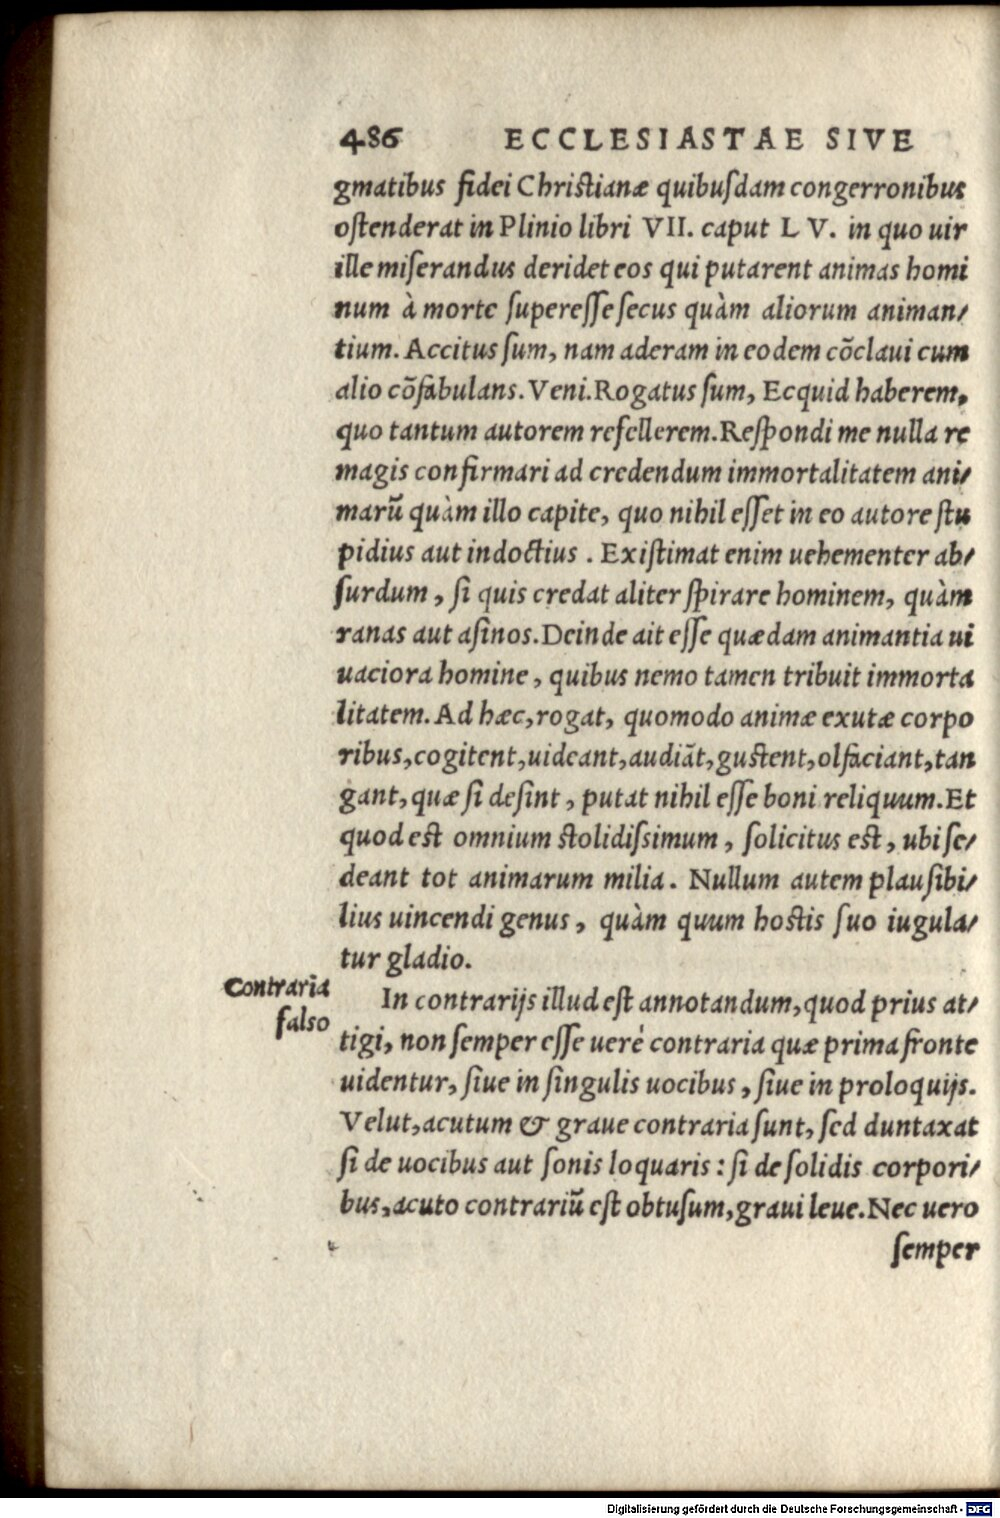 486 ECCLESIASTAE SIVE
gmatibus fidei Christianæ quibuſdam congerronibus
oſtenderat in Plinio libri VII. caput LV. in quo uir
ille miſerandus deridet eos qui putarent animas homi
num à morte ſupereſſe ſecus quàm aliorum animan/
tium. Accitus ſum, nam aderam in eodem cõclaui cum
alio cõfabulans. Veni. Rogatus ſum, Ecquid haberem,
quo tantum autorem refellerem. Reſpondi me nulla re
magis confirmari ad credendum immortalitatem ani/
marũ quàm illo capite, quo nihil eſſet in eo autore ſtu
pidius aut indoctius. Exiſtimat enim uehementer ab/
ſurdum, ſi quis credat aliter ſpirare hominem, quàm
ranas aut aſinos. Deinde ait eſſe quædam animantia ui
uaciora homine, quibus nemo tamen tribuit immorta
litatem. Ad hæc, rogat, quomodo animæ exutæ corpo
ribus, cogitent, uideant, audiãt, gustent, olfaciant, tan
gant, quæ ſi deſint, putat nihil eſſe boni reliquum. Et
quod est omnium stolidiſsimum, ſolicitus est, ubi ſe/
deant tot animarum milia. Nullum autem plauſibi/
lius uincendi genus, quàm quum hostis ſuo iugula/
tur gladio.
Contraria
falso
In contrarijs illud eſt annotandum, quod prius at/
tigi, non ſemper eſſe uerè contraria quæ prima fronte
uidentur, ſiue in ſingulis uocibus, ſiue in proloquijs.
Velut, acutum & graue contraria ſunt, ſed duntaxat
ſi de uocibus aut ſonis loquaris: ſi de ſolidis corpori/
bus, acuto contrariũ eſt obtuſum, graui leue. Nec uero
ſemper
Digitalisierung gefördert durch die Deutsche Forschungsgemeinschaft - DFG